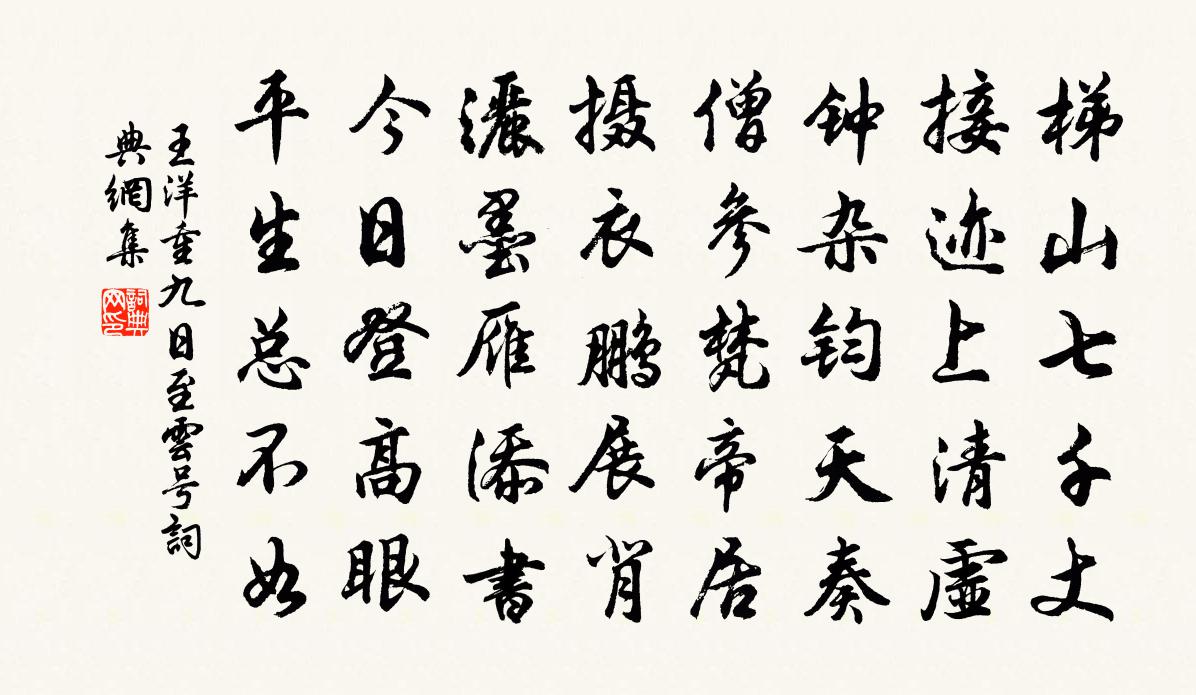 梯山七千丈
接迹上清虚
钟杂钧天奏
僧参梵帝居
摄衣鹏展背
洒墨雁添書
今日登高眼
平生总不如
王洋重九日至雲号詞
典網集
詞典
网印